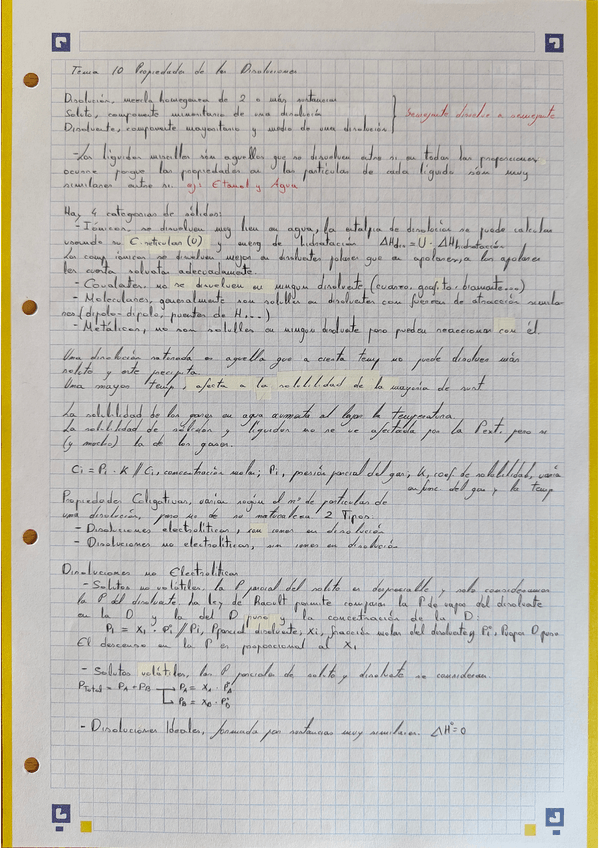 Tema 10 Propiedades de las Disoluciones
Disolución, mezcla homogenea de 2 o más sustancias
Soluto, componente minoritario de una disolución
Disolvente, componente mayoritario y medio de una disolución
Semejante disuelve a semejante
- Los líquidos miscibles son aquellos que se disuelven entre si en todas las proporciones
ocurre porque las propiedades en las particulas de cada líquido son muy
similares entre si. ej: Etanol y Agua
Hay 4 categorias de sólidos:
- Iónicos, se disuelven muy bien en agua, la entalpia de disolución se puede calcular
usando su E. reticular (U) y energ. de hidratación ΔHdis = U - ΔHhidratación
Los comp iónicos se disuelven mejor en disolventes polares que en apolares, a los apolares
les cuesta solvatar adecuadamente.
- Covalentes, no se disuelven en ningun disolvente (cuarzo, grafito, diamante...)
- Moleculares, generalmente son solubles en disolventes con fuerzas de atracción simila-
res (dipolo-dipolo, puentes de H...)
- Metálicos, no son solubles en ningun disolvente pero pueden reaccionar con él.
Una disolución saturada es aquella que a cierta temp no puede disolver más
soluto y este precipita.
Una mayor temp, afecta a la solubilidad de la mayoria de sust
La solubilidad de los gases en agua aumenta al bajar la temperatura.
La solubilidad de solidos y liquidos no se ve afectada por la Pext. pero si
(y mucho) la de los gases.
Ci = Pi · K // Ci, concentración molar; Pi, presión parcial del gas; K, coef. de solubilidad, varia
en func del gas y la temp
Propiedades Coligativas, varian según el nº de particulas de
una disolución, pero no de su naturaleza 2 Tipos.
- Disoluciones electrolíticas, con iones en disolución
- Disoluciones no electrolíticas, sin iones en disolución
Disoluciones no Electrolíticas
- Solutos no volátiles. la P parcial del soluto es despreciable y solo consideramos
la P del disolvente. La ley de Raoult permite comparar la P de vapor del disolvente
en la D y la del D puro y la concentración de la D:
P1 = X1 · P° // P1, P parcial disolvente, X1, fracción molar del disolvente y P1°, P vapor D puro
El descenso en la P es proporcional al X1
- Solutos volátiles, las P parciales de soluto y disolvente se consideran.
PTotal = PA + PB → PA = XA · P°A
→ PB = XB · P°B
- Disoluciones Ideales, formada por sustancias muy similares. ΔH° = 0